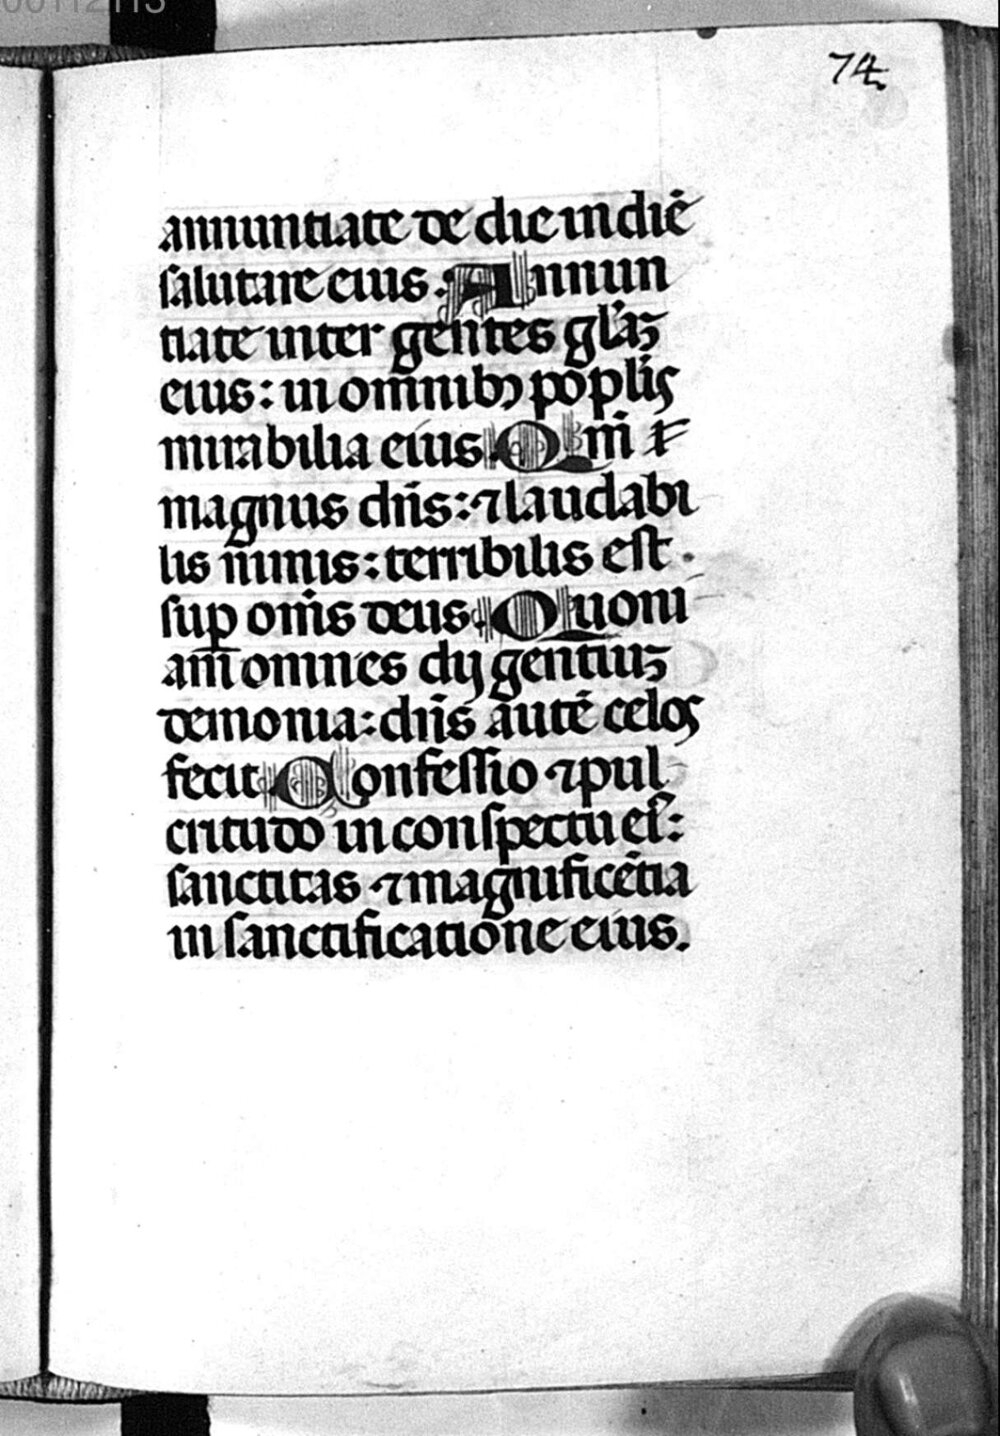 00112113
74.
annuntiate de die in diē
salutare eius. Annun
tiate inter gentes gl'iaꝫ
eius: in om̄nibꝰ pop̄lis
mirabilia eius. Qm̄ ⁊
magnus dn̄s: ⁊ laudabi
lis nimis: terribilis est.
suꝑ om̄s deus. Quoni
am omnes dij gentiuꝫ
demonia: dn̄s autē celos
fecit. Confessio ⁊ pul
critudo in conspectu ei':
sanctitas ⁊ magnificētia
in sanctificatione eius.